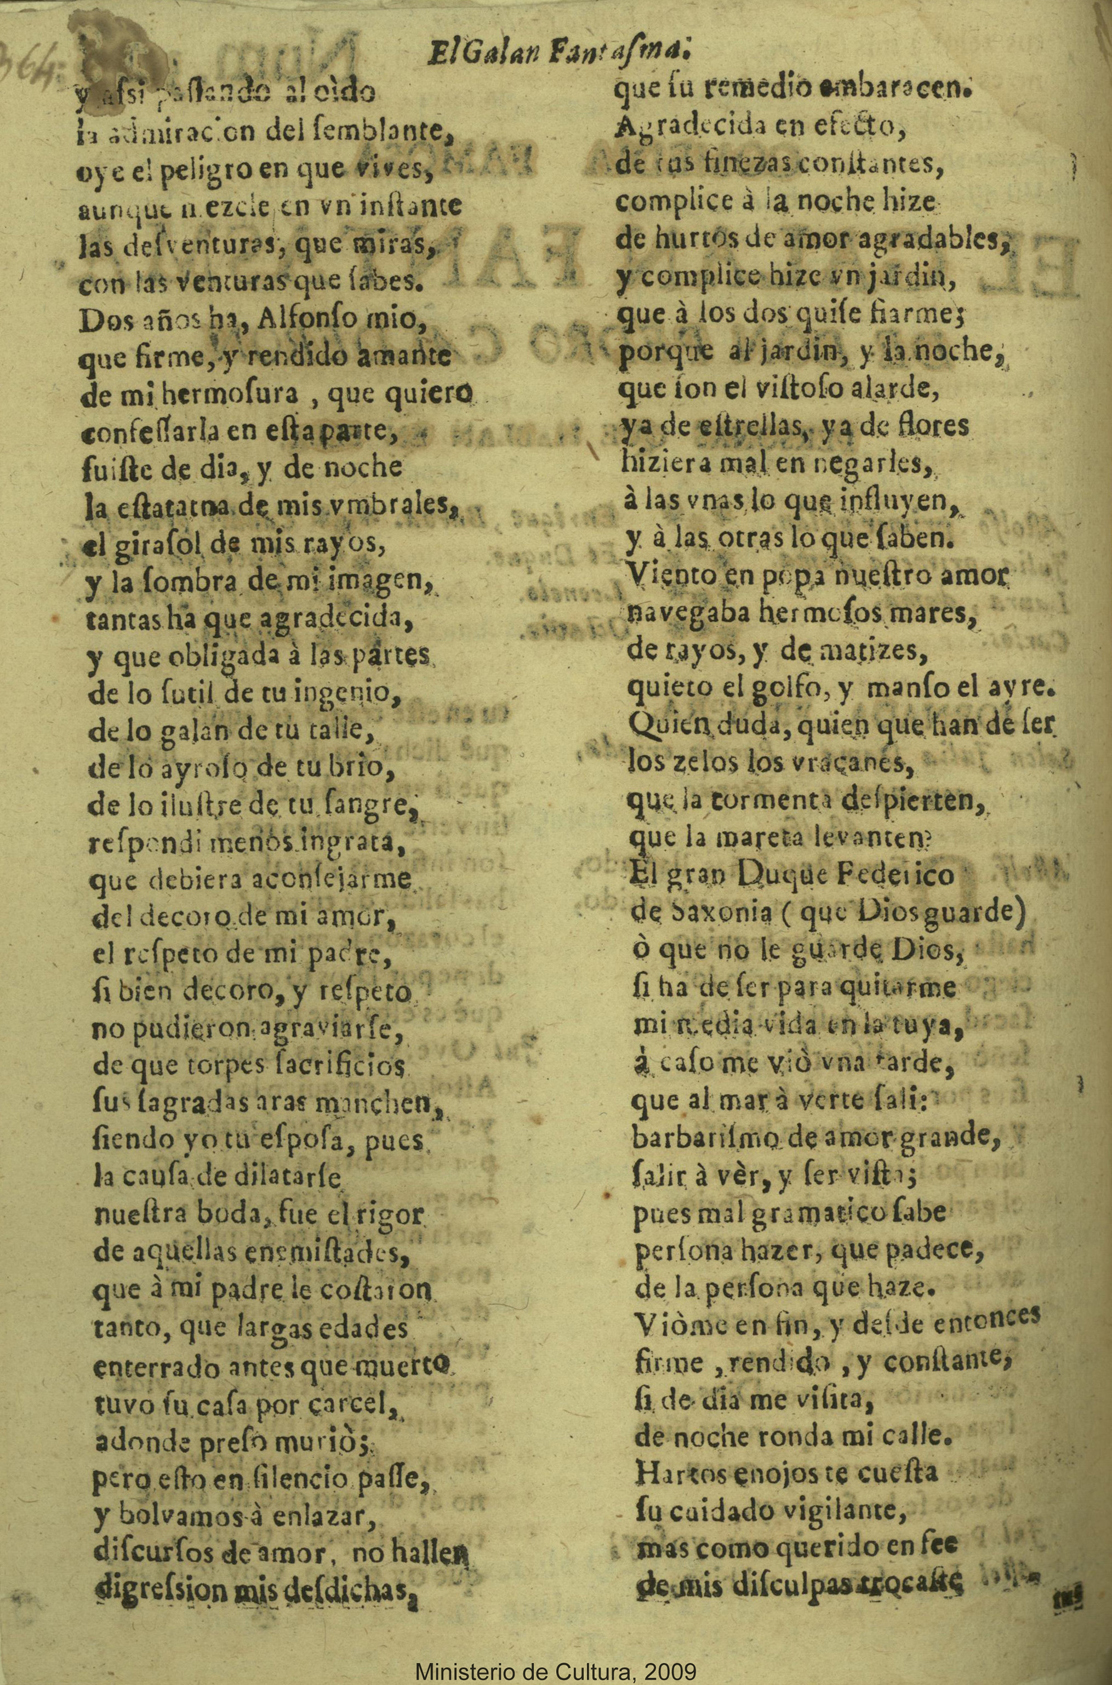 364
El Galan Fantasma.
y assi passando al oìdo
la admiracion del semblante,
oye el peligro en que vives,
aunque mezcle en vn instante
las desventuras, que miras,
con las venturas que sabes.
Dos años ha, Alfonso mio,
que firme, y rendido amante
de mi hermosura, que quiero
confessarla en esta parte,
fuiste de dia, y de noche
la estatatna de mis vmbrales,
el girasol de mis rayos,
y la sombra de mi imagen,
tantas ha que agradecida,
y que obligada à las partes
de lo sutil de tu ingenio,
de lo galan de tu talle,
de lo ayroso de tu brio,
de lo ilustre de tu sangre,
respondi menos ingrata,
que debiera aconsejarme
del decoro de mi amor,
el respeto de mi padre,
si bien decoro, y respeto
no pudieron agraviarse,
de que torpes sacrificios
sus sagradas aras manchen,
siendo yo tu esposa, pues
la causa de dilatarse
nuestra boda, fue el rigor
de aquellas enemistades,
que à mi padre le costaron
tanto, que largas edades
enterrado antes que muerto
tuvo su casa por carcel,
adonde preso muriò;
pero esto en silencio passe,
y bolvamos à enlazar,
discursos de amor, no hallen
digression mis desdichas,
que su remedio embaracen.
Agradecida en efecto,
de tus finezas constantes,
complice à la noche hize
de hurtos de amor agradables,
y complice hize vn jardin,
que à los dos quise fiarme;
porque al jardin, y la noche,
que son el vistoso alarde,
ya de estrellas, ya de flores
hiziera mal en negarles,
à las vnas lo que influyen,
y à las otras lo que saben.
Viento en popa nuestro amor
navegaba hermosos mares,
de rayos, y de matizes,
quieto el golfo, y manso el ayre.
Quien duda, quien que han de ser
los zelos los vracanes,
que la tormenta despierten,
que la mareta levanten?
El gran Duque Federico
de Saxonia (que Dios guarde)
ò que no le guarde Dios,
si ha de ser para quitarme
mi media vida en la tuya,
à caso me viò vna tarde,
que al mar à verte sali:
barbarismo de amor grande,
salir à vèr, y ser vista;
pues mal gramatico sabe
persona hazer, que padece,
de la persona que haze.
Viòme en fin, y desde entonces
firme, rendido, y constante,
si de dia me visita,
de noche ronda mi calle.
Hartos enojos te cuesta
su cuidado vigilante,
mas como querido en fee
de mis disculpas trocaste
tus
Ministerio de Cultura, 2009